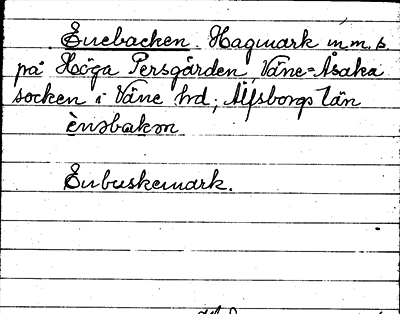 Enebacken. Hagmark m.m.s.
på Höga Persgården, Väne-Åsaka
socken i Väne hrd; Älfsborgs län
ènəbakən
Enbuskemark.